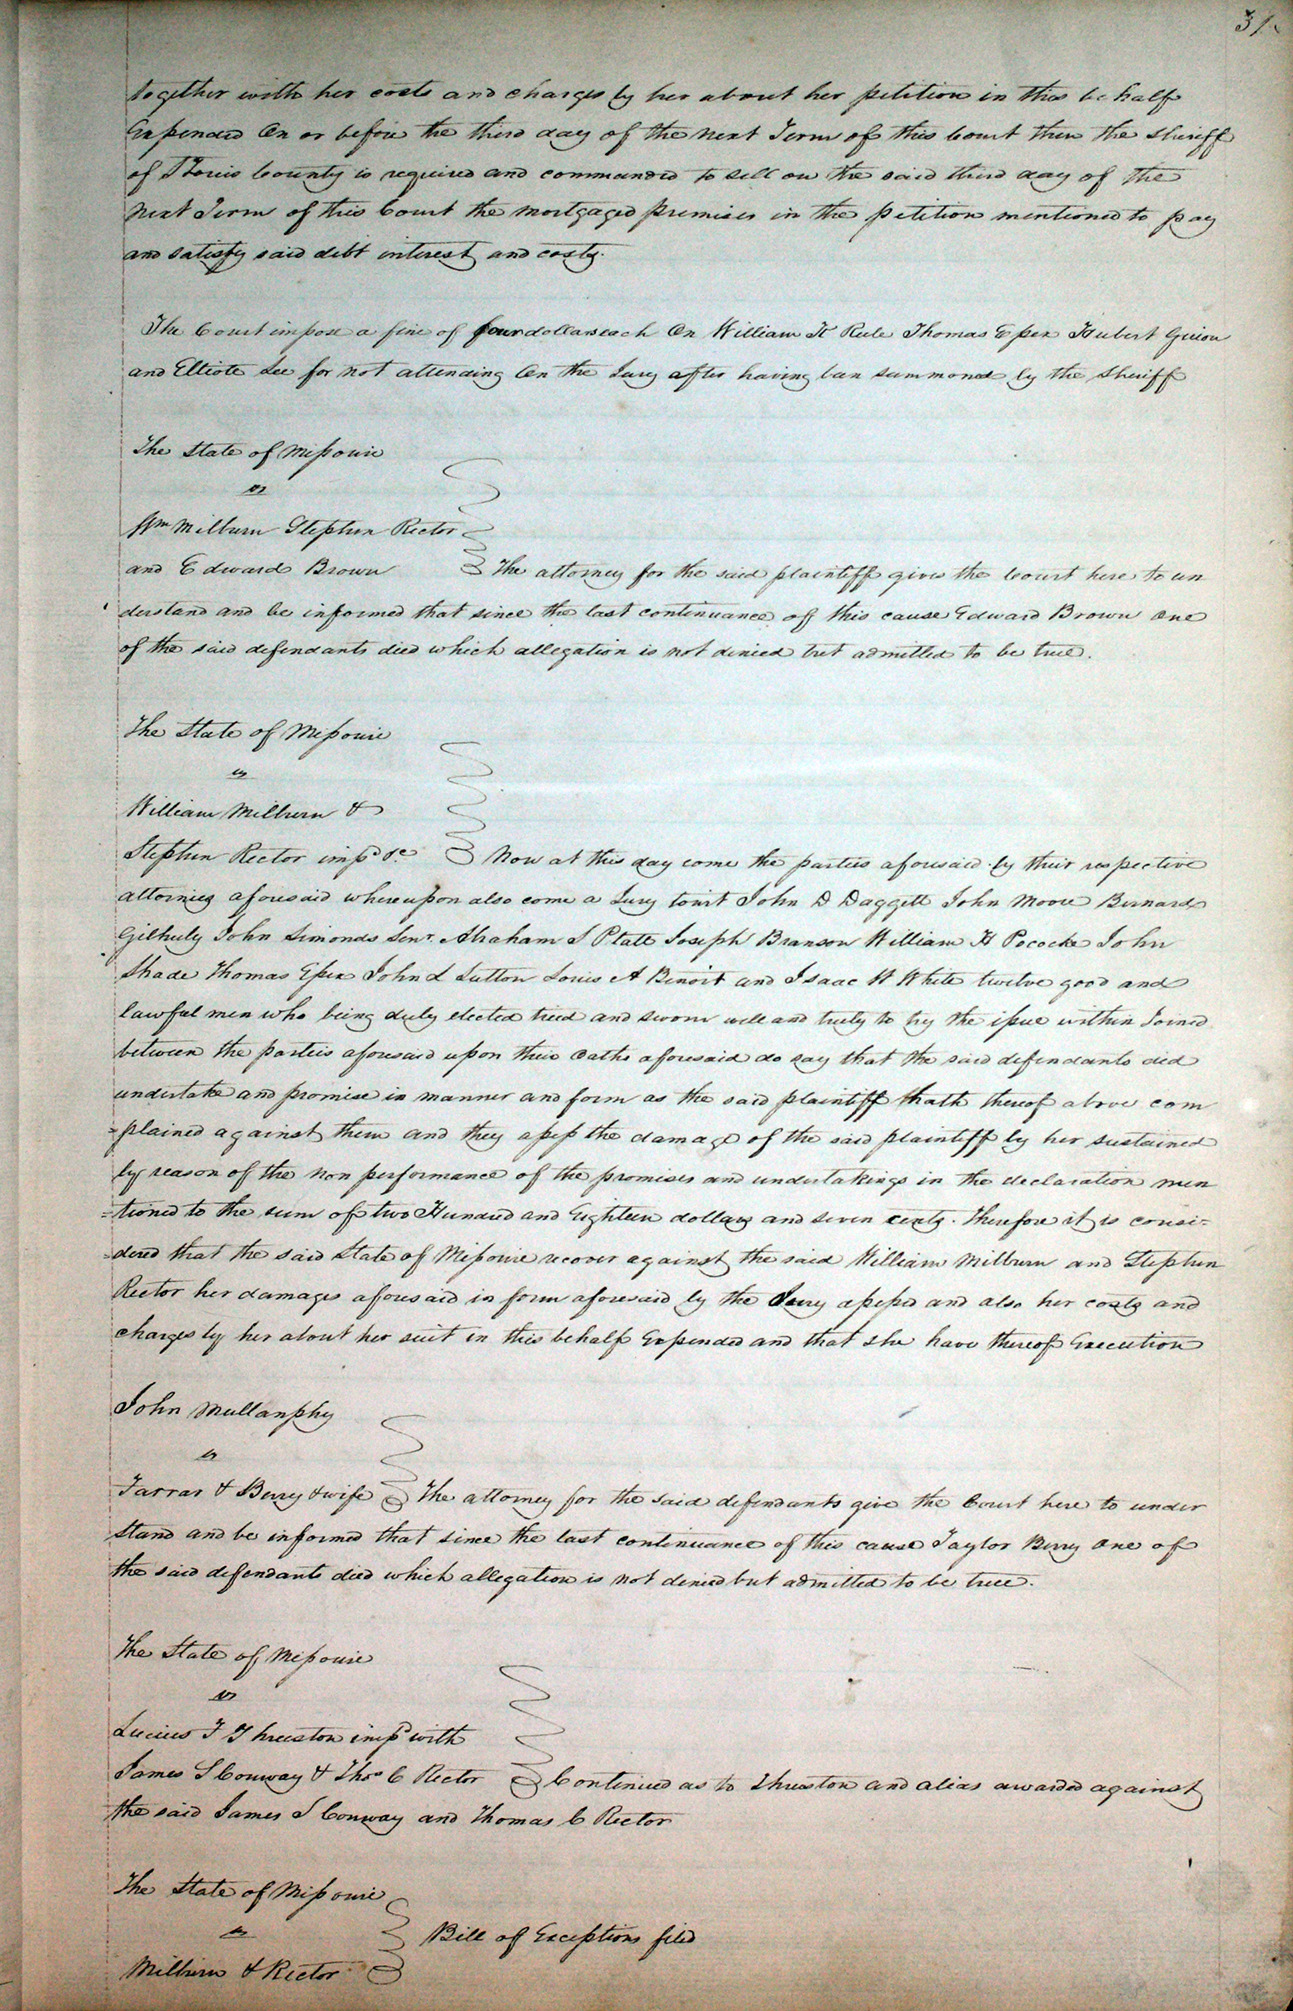 31.
together with her costs and charges by her about her petition in this behalf
Expended On or before the third day of the next Term of this Court then the Sheriff
of St Louis County is required and commanded to sell on the said third day of the
next Term of this Court the mortgaged premises in the petition mentioned to pay
and satisfy said debt interest and costs.
The Court impose a fine of four dollars each On William K Rule Thomas Essex Hubert Guion
and Elliote Lee for not attending On the Jury after having been summoned by the Sheriff
The State of Missouri
vs
Wm Milburn Stephen Rector
and Edward Brown The attorney for the said plaintiff gives the Court here to un
derstand and be informed that since the last continuance of this cause Edward Brown one
of the said defendants died which allegation is not denied but admitted to be true.
The State of Missouri
vs
William Milburn &
Stephen Rector impd &c Now at this day come the parties aforesaid by their respective
attornies aforesaid whereupon also come a Jury towit John D Daggett John Moore Bernard
Gilhuly John Simonds Senr. Abraham S Platt Joseph Branson William H Pococke John
Shade Thomas Essex John L Sutton Louis A Benoit and Isaac W White twelve good and
lawful men who being duly elected tried and sworn well and truly to try the issue within Joined
between the parties aforesaid upon their Oaths aforesaid do say that the said defendants did
undertake and promise in manner and form as the said plaintiff hath thereof above com
-plained against them and they assess the damage of the said plaintiff by her sustained
by reason of the non performance of the promises and undertakings in the declaration men
=tioned to the sum of two Hundred and Eighteen dollars and seven cents. Therefore it is consi=
=dered that the said State of Missouri recover against the said William Milburn and Stephen
Rector her damages aforesaid in form aforesaid by the Jury assessed and also her costs and
charges by her about her suit in this behalf Expended and that she have thereof Execution
John Mullanphy
vs
Farrar & Berry & wife The attorney for the said defendants give the Court here to under
stand and be informed that since the last continuance of this cause Taylor Berry one of
the said defendants died which allegation is not denied but admitted to be true.
The State of Missouri
vs
Lucius F Thruston impd with
James S Conway & Thos C Rector Continued as to Thruston and alias awarded against
the said James S Conway and Thomas C Rector
The State of Missouri
vs
Bill of Exceptions filed
Milburn & Rector